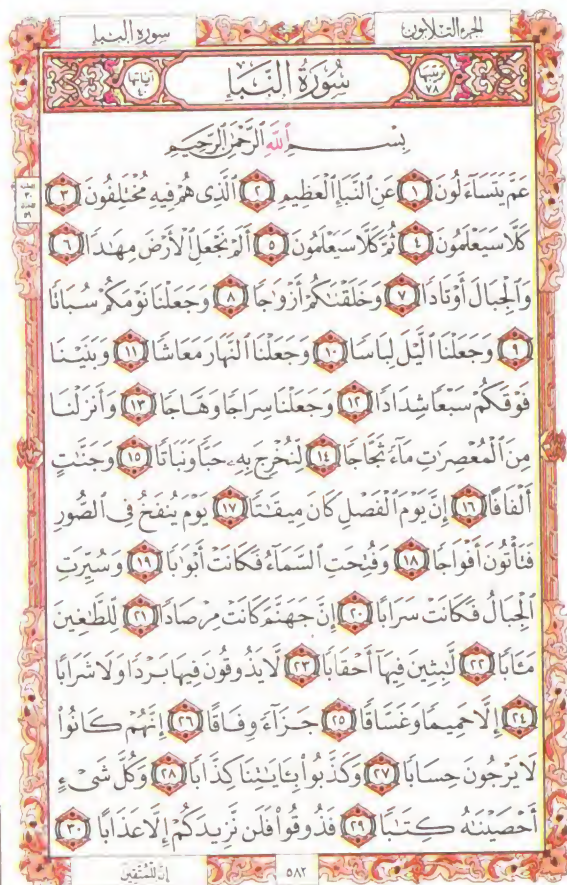 الجزء الثلاثون
سورة النبإ
ترتيبها ٧٨
سُورَةُ النَّبَإِ
آياتها ٤٠
بِسْمِ ٱللَّهِ ٱلرَّحْمَٰنِ ٱلرَّحِيمِ
عَمَّ يَتَسَآءَلُونَ ١ عَنِ ٱلنَّبَإِ ٱلْعَظِيمِ ٢ ٱلَّذِى هُمْ فِيهِ مُخْتَلِفُونَ ٣
كَلَّا سَيَعْلَمُونَ ٤ ثُمَّ كَلَّا سَيَعْلَمُونَ ٥ أَلَمْ نَجْعَلِ ٱلْأَرْضَ مِهَٰدًا ٦
وَٱلْجِبَالَ أَوْتَادًا ٧ وَخَلَقْنَٰكُمْ أَزْوَٰجًا ٨ وَجَعَلْنَا نَوْمَكُمْ سُبَاتًا
٩ وَجَعَلْنَا ٱلَّيْلَ لِبَاسًا ١٠ وَجَعَلْنَا ٱلنَّهَارَ مَعَاشًا ١١ وَبَنَيْنَا
فَوْقَكُمْ سَبْعًا شِدَادًا ١٢ وَجَعَلْنَا سِرَاجًا وَهَّاجًا ١٣ وَأَنزَلْنَا
مِنَ ٱلْمُعْصِرَٰتِ مَآءً ثَجَّاجًا ١٤ لِّنُخْرِجَ بِهِۦ حَبًّا وَنَبَاتًا ١٥ وَجَنَّٰتٍ
أَلْفَافًا ١٦ إِنَّ يَوْمَ ٱلْفَصْلِ كَانَ مِيقَٰتًا ١٧ يَوْمَ يُنفَخُ فِى ٱلصُّورِ
فَتَأْتُونَ أَفْوَاجًا ١٨ وَفُتِحَتِ ٱلسَّمَآءُ فَكَانَتْ أَبْوَٰبًا ١٩ وَسُيِّرَتِ
ٱلْجِبَالُ فَكَانَتْ سَرَابًا ٢٠ إِنَّ جَهَنَّمَ كَانَتْ مِرْصَادًا ٢١ لِّلطَّٰغِينَ
مَـَٔابًا ٢٢ لَّٰبِثِينَ فِيهَآ أَحْقَابًا ٢٣ لَّا يَذُوقُونَ فِيهَا بَرْدًا وَلَا شَرَابًا
٢٤ إِلَّا حَمِيمًا وَغَسَّاقًا ٢٥ جَزَآءً وِفَاقًا ٢٦ إِنَّهُمْ كَانُوا۟
لَا يَرْجُونَ حِسَابًا ٢٧ وَكَذَّبُوا۟ بِـَٔايَٰتِنَا كِذَّابًا ٢٨ وَكُلَّ شَىْءٍ
أَحْصَيْنَٰهُ كِتَٰبًا ٢٩ فَذُوقُوا۟ فَلَن نَّزِيدَكُمْ إِلَّا عَذَابًا ٣٠
٥٨٢
إِنَّ لِلْمُتَّقِينَ